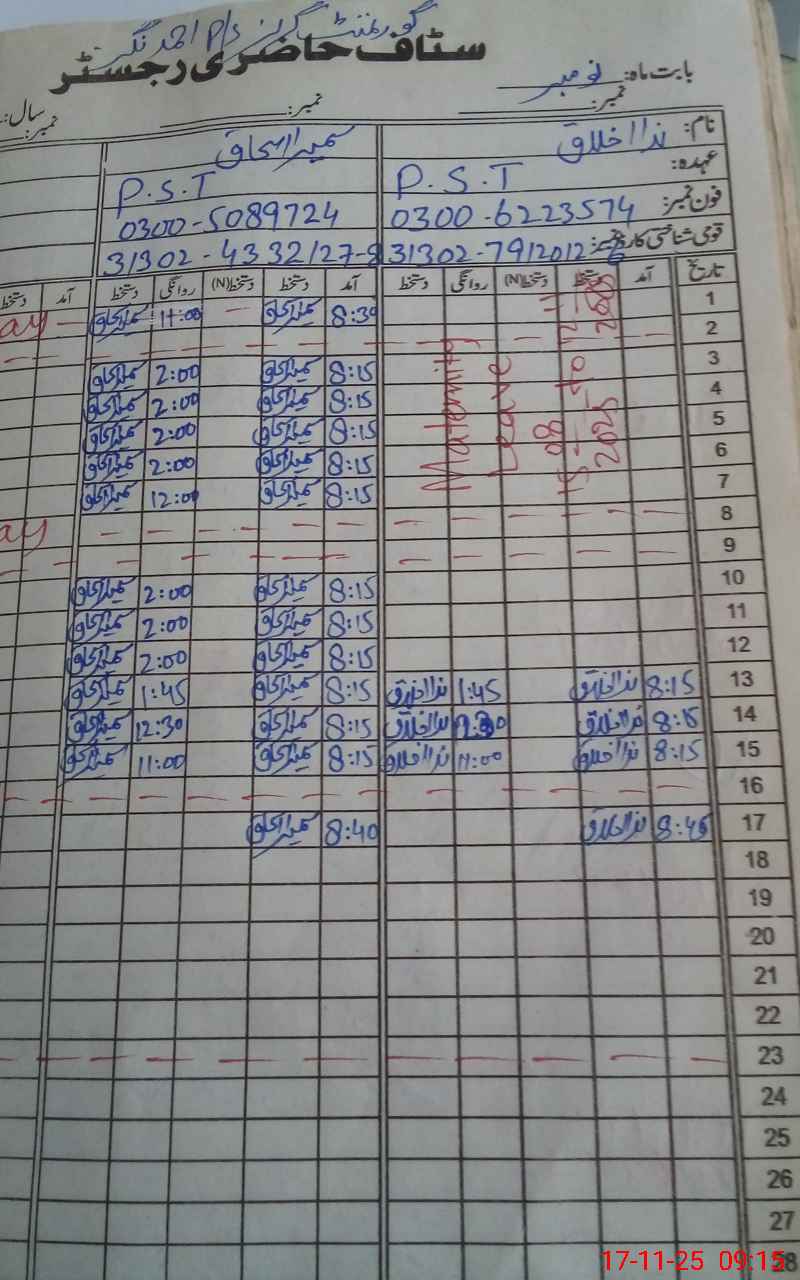 گورنمنٹ گرلز P/S احمد نگر
سٹاف حاضری رجسٹر
بابت ماہ: نومبر
سال:
نمبر: نمبر: نمبر:
نام: ندا اخلاق سمیرا اسحاق
عہدہ: P.S.T P.S.T
فون نمبر: 0300-6223574 0300-5089724
قومی شناختی کارڈ نمبر: 31302-7912012-6 31302-4332127-8
تاریخ آمد دستخط دستخط(N) روانگی دستخط آمد دستخط دستخط(N) روانگی دستخط آمد دستخط
Maternity
Leave
1 8:30 سمیرا اسحاق 11:00 سمیرا اسحاق
2
3 8:15 سمیرا اسحاق 2:00 سمیرا اسحاق
4 8:15 سمیرا اسحاق 2:00 سمیرا اسحاق
5 8:15 سمیرا اسحاق 2:00 سمیرا اسحاق
6 8:15 سمیرا اسحاق 2:00 سمیرا اسحاق
7 8:15 سمیرا اسحاق 12:00 سمیرا اسحاق
8
9
10 8:15 سمیرا اسحاق 2:00 سمیرا اسحاق
11 8:15 سمیرا اسحاق 2:00 سمیرا اسحاق
12 8:15 سمیرا اسحاق 2:00 سمیرا اسحاق
13 8:15 ندا اخلاق 1:45 ندا اخلاق 8:15 سمیرا اسحاق 1:45 سمیرا اسحاق
14 8:15 ندا اخلاق 12:30 ندا اخلاق 8:15 سمیرا اسحاق 12:30 سمیرا اسحاق
15 8:15 ندا اخلاق 11:00 ندا اخلاق 8:15 سمیرا اسحاق 11:00 سمیرا اسحاق
16
17 8:45 ندا اخلاق 8:40 سمیرا اسحاق
18
19
20
21
22
23
24
25
26
27
28
17-11-25 09:15